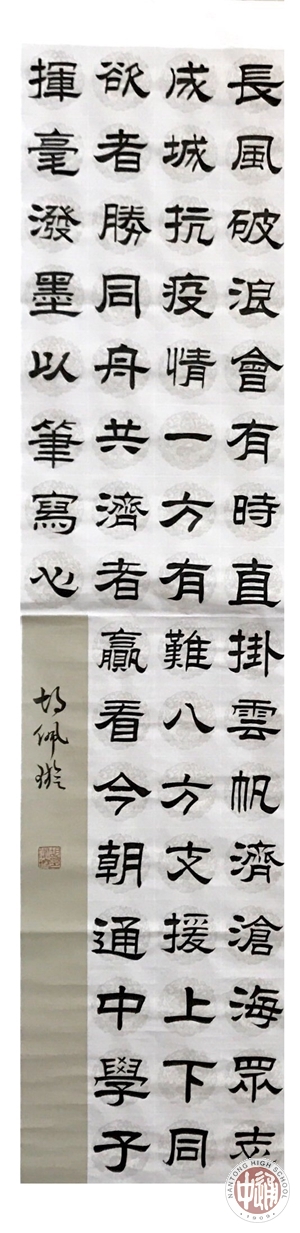 長風破浪會有時直掛雲帆濟滄海眾志
成城抗疫情一方有難八方支援上下同
欲者勝同舟共濟者贏看今朝通中學子
揮毫潑墨以筆寫心
胡佩璇
NANTONG HIGH SCHOOL
通中